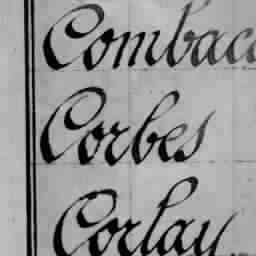 Combac
Corbes
Corlay